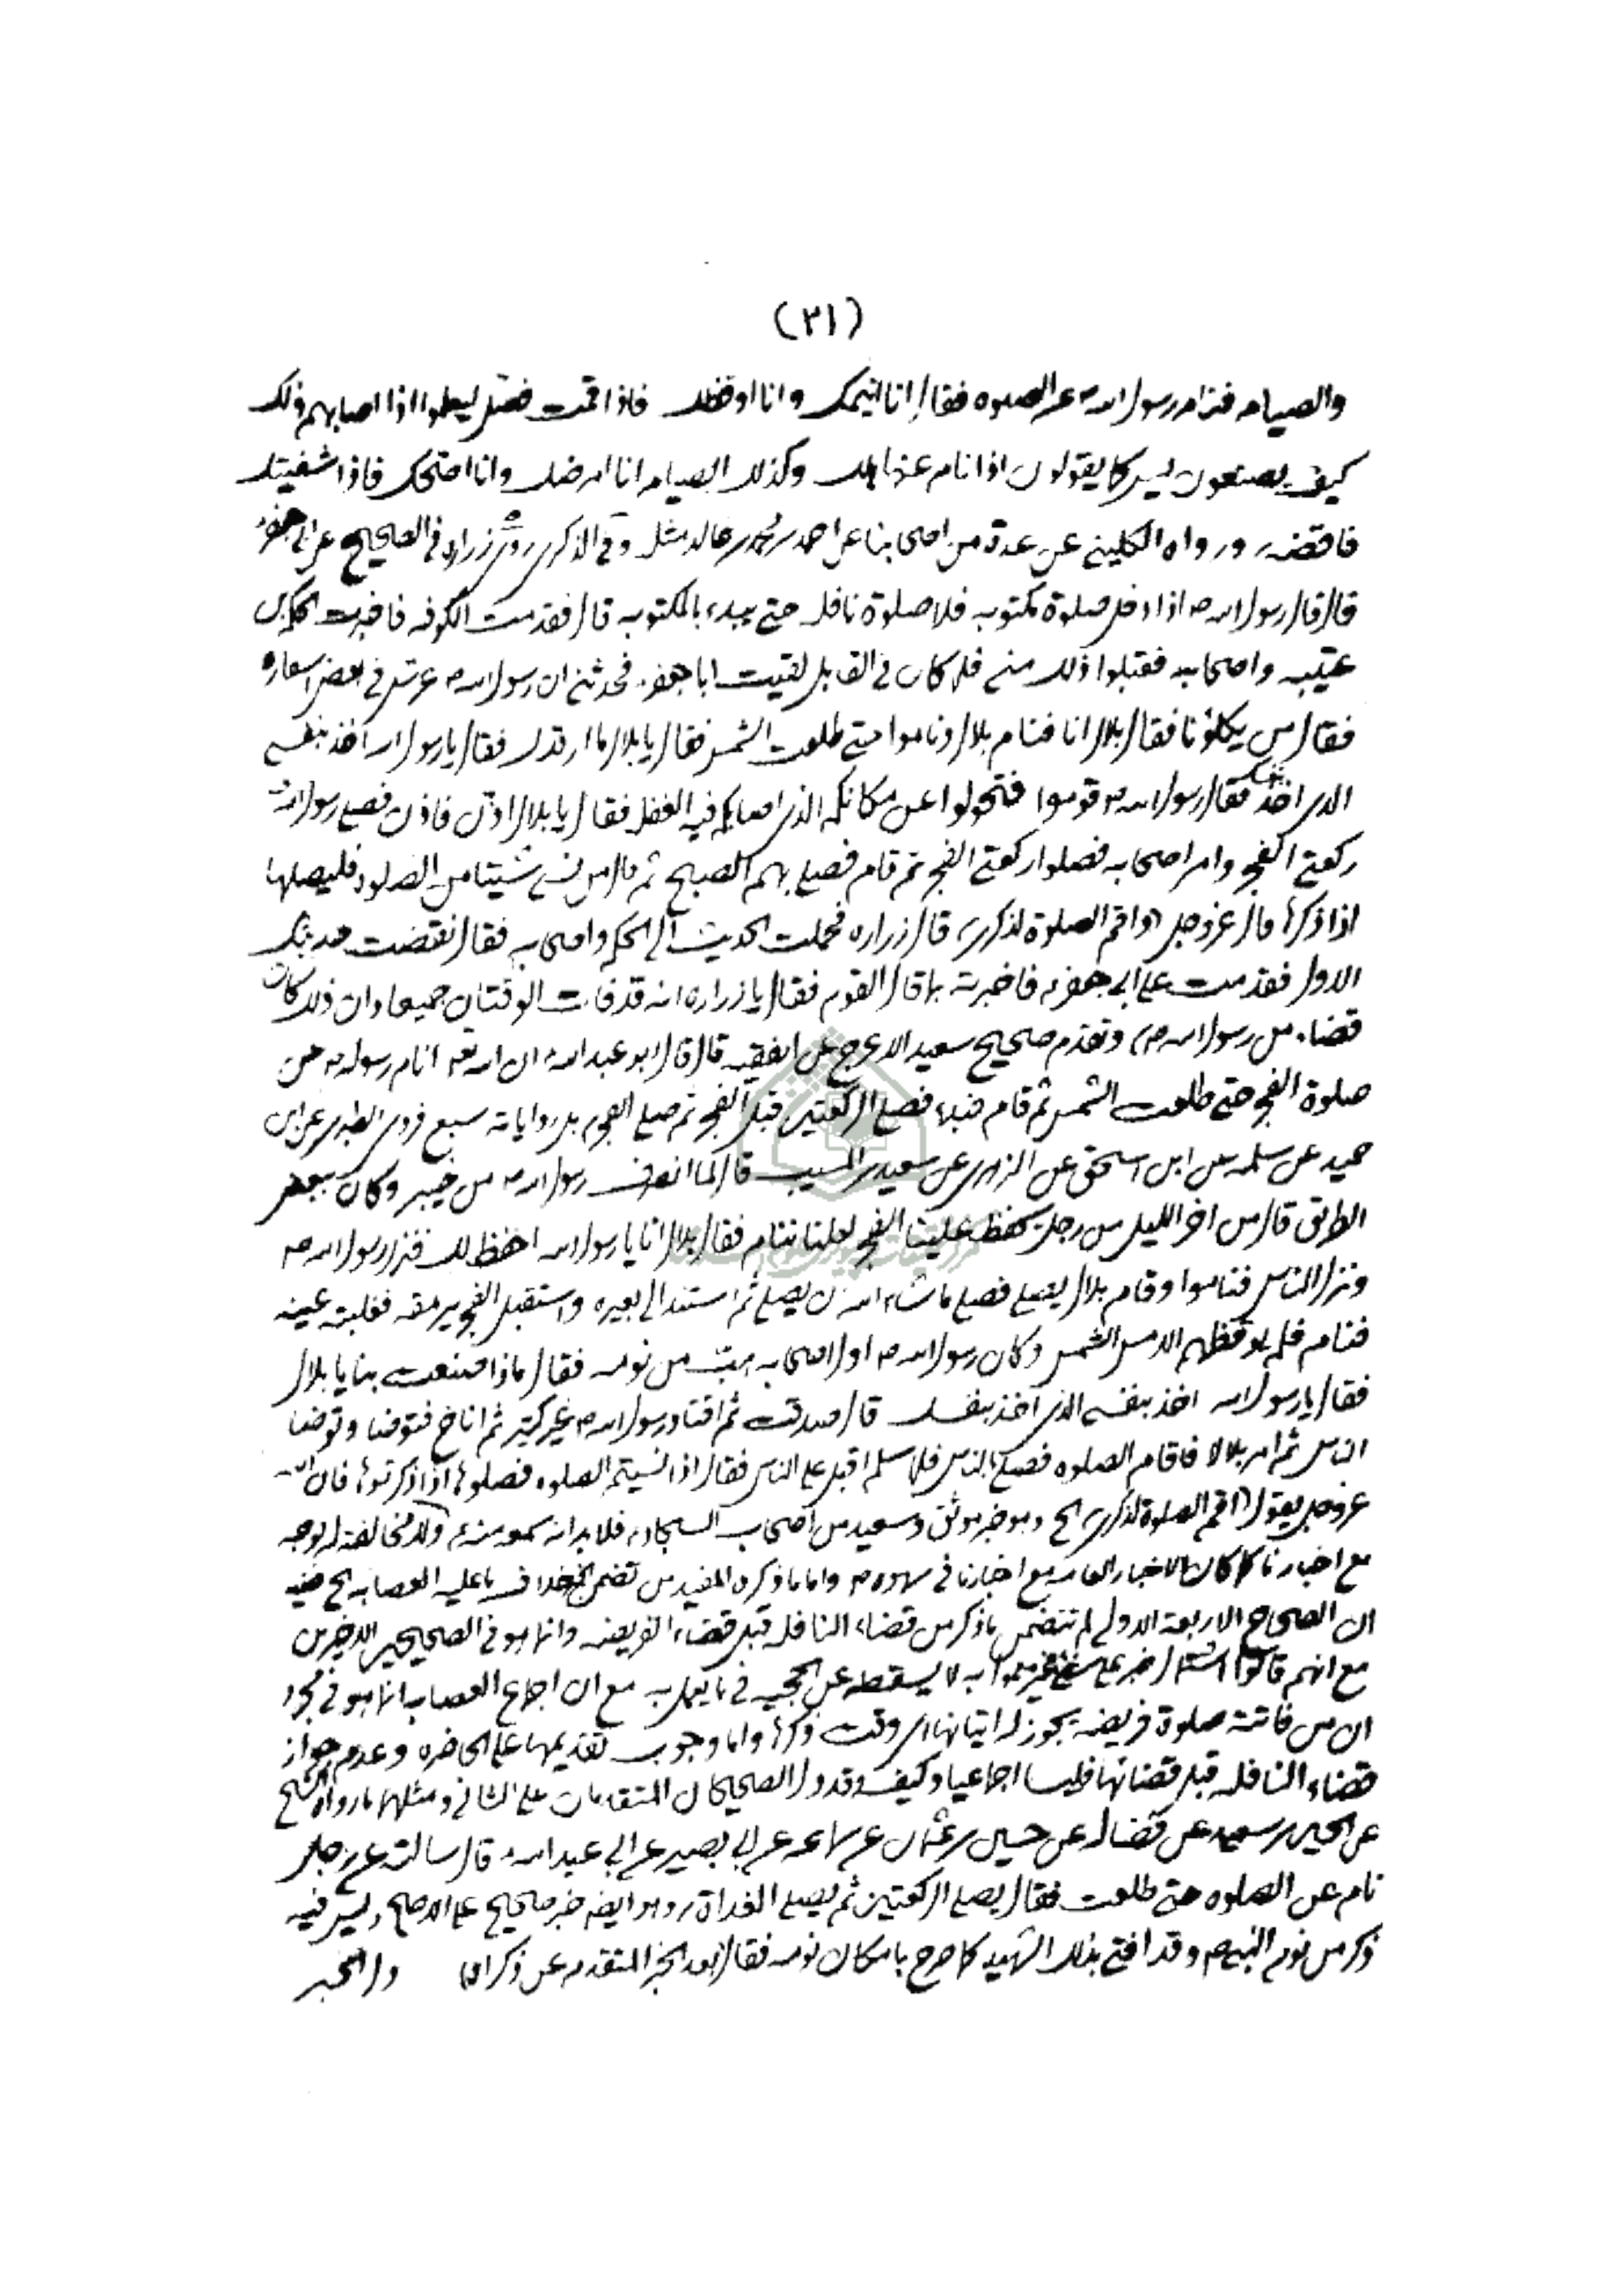 (٢١)
والصيام فنام رسول الله ص عن الصلوه فقال انا انيمك وانا اوقظك فاذا قمت فصل ليعلموا اذا اصابهم ذلك
كيف يصنعون ليس كما يقولون اذا نام عنها هلك وكذلك الصيام انا امرضك وانا اصحك فاذا شفيتك
فاقضه، ورواه الكليني عن عدة من اصحابنا عن احمد بن محمد بن خالد مثله وفي الذكرى روى زراره في الصحيح عن ابي جعفر ع
قال قال رسول الله ص اذا دخل صلوة مكتوبه فلا صلوة نافله حتى يبدء بالمكتوبه قال فقدمت الكوفه فاخبرت الحكم بن
عتيبه واصحابه فقبلوا ذلك مني فلما كان في القابل لقيت ابا جعفر ع فحدثني ان رسول الله ص عرّس في بعض اسفاره
فقال من يكلؤنا فقال بلال انا فنام بلال وناموا حتى طلعت الشمس فقال يا بلال ما ارقدك فقال يا رسول الله اخذ بنفسي
الذي اخذ بنفسك فقال رسول الله ص قوموا فتحولوا عن مكانكم الذي اصابكم فيه الغفله فقال يا بلال اذّن فاذن فصلى رسول الله ص
ركعتي الفجر وامر اصحابه فصلوا ركعتي الفجر ثم قام فصلى بهم الصبح ثم قال من نسي شيئا من الصلوة فليصلها
اذا ذكرها فان عز وجل (واقم الصلوة لذكري) قال زراره فحملت الحديث الى الحكم واصحابه فقال نقضت حديثك
الاول فقدمت على ابي جعفر ع فاخبرته بما قال القوم فقال يا زراره انه قد فات الوقتان جميعا وان ذلك كان
قضاء من رسول الله ص) وتقدم صحيح سعيد الاعرج عن الفقيه قال قال ابو عبد الله ع ان الله تعه انام رسوله ص عن
صلوة الفجر حتى طلعت الشمس ثم قام فبدء فصلى الركعتين قبل الفجر ثم صلى الفجر، بل رواياته سبع فروى الطبري عن ابن
حميد عن سلمه عن ابن اسحق عن الزهري عن سعيد بن المسيب قال لما انصرف رسول الله ص من خيبر وكان ببعض
الطريق قال من اخر الليل من رجل يحفظ علينا الفجر لعلنا ننام فقال بلال انا يا رسول الله احفظ لك فنزل رسول الله ص
ونزل الناس فناموا وقام بلال يصلي فصلى ما شاء الله ان يصلي ثم استند الى بعيره واستقبل الفجر يرمقه فغلبته عينه
فنام فلم يوقظهم الا مس الشمس وكان رسول الله ص اول اصحابه هبّ من نومه فقال ماذا صنعت بنا يا بلال
فقال يا رسول الله اخذ بنفسي الذي اخذ بنفسك قال صدقت ثم اقتاد رسول الله ص غير كثير ثم اناخ فتوضا وتوضا
الناس ثم امر بلالا فاقام الصلوه فصلى بالناس فلما سلم اقبل على الناس فقال اذا نسيتم الصلوه فصلوها اذا ذكرتموها فان الله
عز وجل يقول (اقم الصلوة لذكري) الخ وهو خبر موثق وسعيد من اصحاب السجاد ع فلا بد انه سمعه منه ع ولا مخالفة له بوجه
مع اخبارنا كما كان الاخبار العامه مع اخبارنا في سهوه ص واما ما ذكره المفيد من تضمن الخبر خلاف ما عليه العصابه الخ ففيه
ان الصحاح الاربعة الاولى لم تتضمن ما ذكر من قضاء النافله قبل قضاء الفريضه وانما هو في الصحيحين الاخيرين
مع انهم قالوا اشتمال خبر على شيء غير معمول به لا يسقطه عن الحجيه في ما يعمل به مع ان اجماع العصابه انما هو في مجرد
ان من فاتته صلوة فريضه يجوز له اتيانها اي وقت ذكرها واما وجوب تقديمها على الحاضره وعدم جواز
قضاء النافله قبل قضائها فليسا اجماعيا وكيف وقد دل الصحيحان المتقدمان على الثاني ومثلهما ما رواه الشيخ
عن الحسين بن سعيد عن فضاله عن حسين بن عثمان عن سماعه عن ابي بصير عن ابي عبد الله ع قال سالته عن رجل
نام عن الصلوه حتى طلعت فقال يصلي الركعتين ثم يصلي الغداة) وهو ايضا خبر صحيح على الاصح وليس فيه
ذكر من نوم النبي ص وقد افتى بذلك الشهيد كما صرح بامكان نومه فقال (بعد الخبر المتقدم عن ذكراه) والخبر